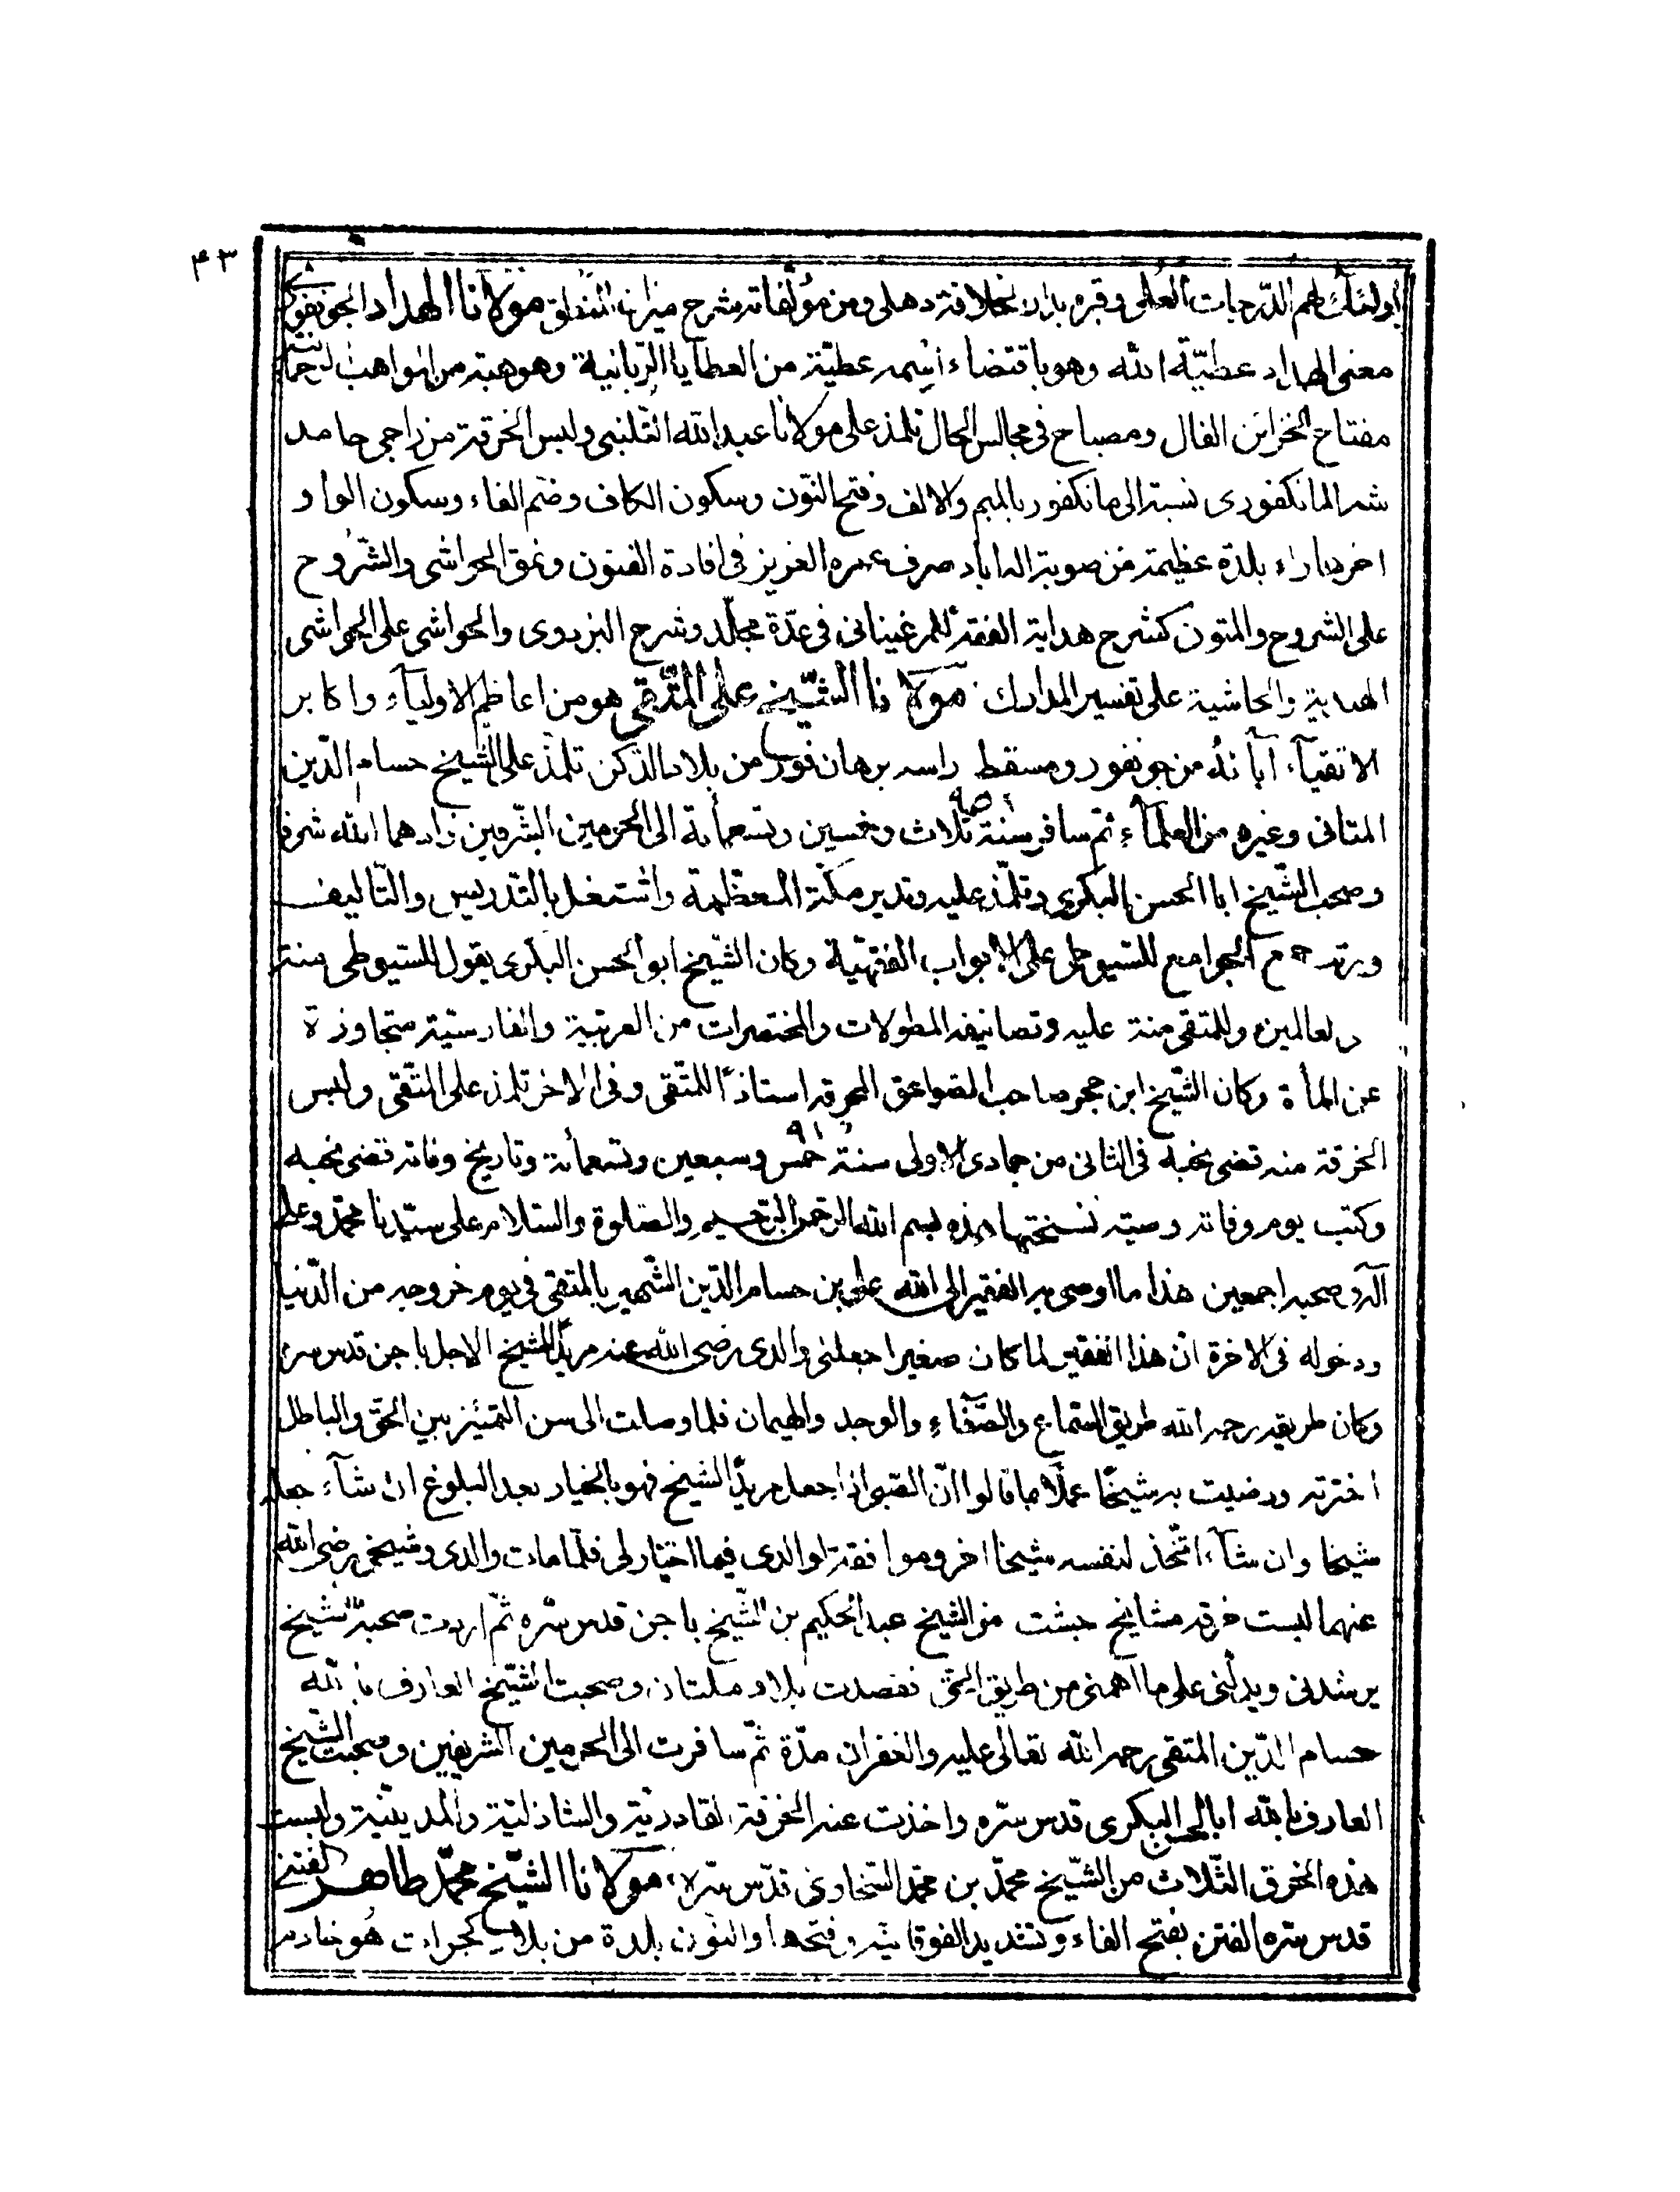 ۴۳
اولئك لهم الدرجات العلى وقبره بدار الخلافة دهلى ومن مؤلفاته شرح ميزان المنطق مولانا الهداد الجونفورى
معنى الهداد عطيّة الله وهو باقتضاء اسمه عطيّة من العطايا الربانية وهو هبة من المواهب الرحمانية
مفتاح لخزائن القال ومصباح فى مجالس الحال تلمذ على مولانا عبد الله التلنبى ولبس الخرقة من راجى حامد
شه المانكفورى نسبة الى مانكفور بالميم والالف وفتح النّون وسكون الكاف وضم الفاء وسكون الواو
اخرها راء بلدة عظيمة من صوبة اله اباد صرف عمره العزيز فى افادة الفنون ونمق الحواشى والشّروح
على الشروح والمتون كشرح هداية الفقه للمرغينانى فى عدّة مجلّد وشرح البزدوى والحواشى على الحواشى
الهندية والحاشية على تفسير المدارك مولانا الشّيخ على المتّقى هو من اعاظم الاولياء واكابر
الاتقياء آبائه من جونفور ومسقط راسه برهان فور من بلاد الدكن تلمّذ على الشّيخ حسام الدّين
المتانى وغيره من العلماء ثم سافر سنة ثلاث وخمسين وتسعمأئة الى الحرمين الشّريفين زادهما الله شرفا
وصحب الشّيخ ابا الحسن البكرى وتلمّذ عليه وتدير مكّة المعظّمة واشتغل بالتّدريس والتّاليف
ورتب جمع الجوامع للسّيوطى على الابواب الفقهيّة وكان الشّيخ ابو الحسن البكرى يقول للسّيوطى منّة
العالمين وللمتقى منة عليه وتصانيفه المطولات والمختصرات من العربية والفارسيّة متجاوزة
عن المأة وكان الشّيخ ابن حجر صاحب الصّواعق المحرقه استاذًا للمتّقى وفى الاخر تلمذ على المتّقى ولبس
الخرقة منه قضى نحبه فى الثانى من جمادى الاولى سنة خمس وسبعين وتسعمأئة وتاريخ وفاته قضى نحبه
وكتب يوم وفاته وصيته نسختها هذه بسم الله الرّحمن الرّحيم والصّلوة والسّلام على سيّدنا محمّد وعلى
آله وصحبه اجمعين هذا ما اوصى به الفقير الى الله على بن حسام الدّين الشّهير بالمتقى فى يوم خروجه من الدّنيا
ودخوله فى الاخرة انّ هذا الفقير لما كان صغيرا جعلنى والدى رضى الله عنه مريدًا للشيخ الاجل باجن قدس سره
وكان طريقه رحمه الله طريق السّماع والصّفاء والوجد والهيمان فلما وصلت الى سن التّميّز بين الحقّ والباطل
اخترته ورضيت به شيخًا عملًا بما قالوا انّ الصّبى اذا جعل مريدًا لشيخ فهو بالخيار بعد البلوغ ان شاء جعله
شيخا وان شاء اتّخذ لنفسه شيخا اخر وموافقة لوالدى فيما اختار لى فلمّا مات والدى وشيخى رضى الله
عنهما لبست خرقه مشايخ جبشت من الشيخ عبد الحكيم بن الشّيخ باجن قدس سّره ثمّ اردت صحبة شيخ
يرشدنى ويدلّنى على ما اهمنى من طريق الحق فقصدت بلاد ملتان وصحبت الشّيخ العارف بالله
حسام الدّين المتقى رحمه الله تعالى عليه والغفران مدّة ثمّ سافرت الى الحرمين الشريفين وصحبت الشّيخ
العارف بالله ابا الحسن البكرى قدس سّره واخذت عنه الخرقة القادريّة والشاذليّة والمدينيّة ولبست
هذه الخرق الثّلاث من الشّيخ محمّد بن محمّد السّخاوى قدّس سّره مولانا الشّيخ محمّد طاهر الفتنى
قدس سّره الفتن بفتح الفاء وتشديد الفوقانيّه وفتحها والنون بلدة من بلاد كجرات هو خادم